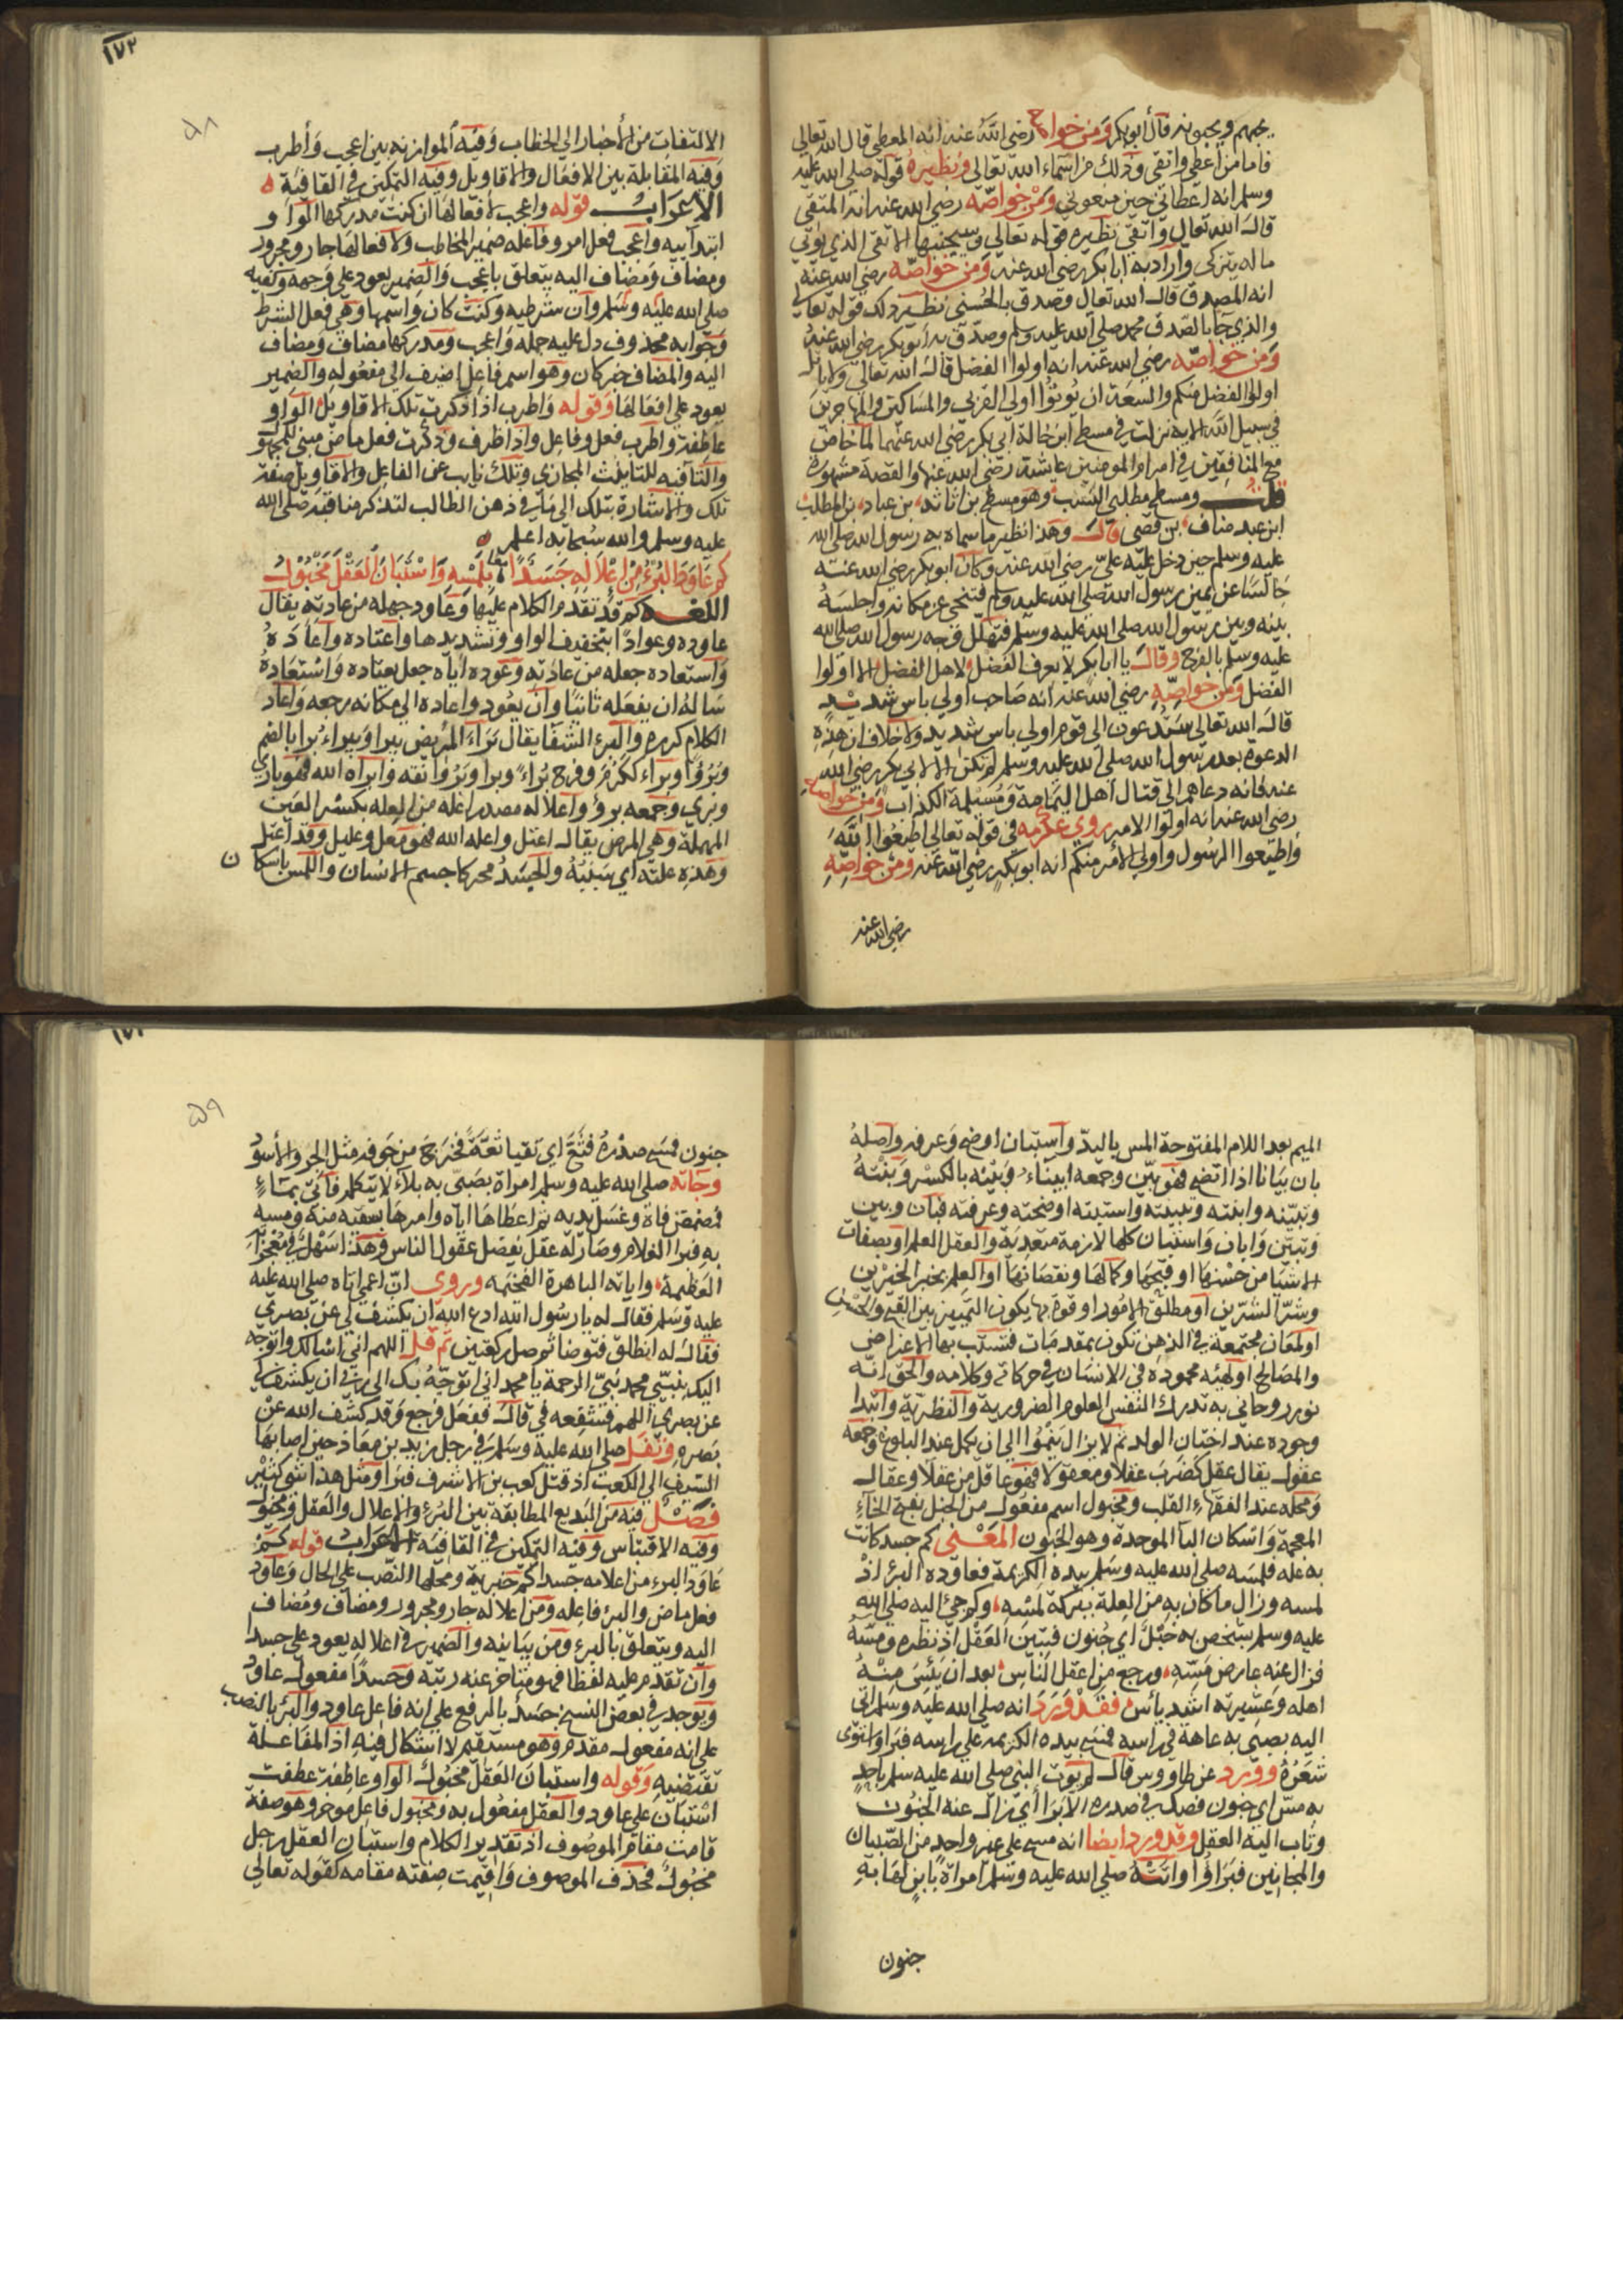 يحبهم ويحبونه قال أبو بكر ومن خواصه رضي الله عنه انه المعطي قال الله تعالى
فاما من اعطى واتقى وذلك من اسماء الله تعالى ونظيره قوله صلى الله عليه
وسلم انه اعطاني حين منعوني ومن خواصه رضي الله عنه انه المتقي
قال الله تعالى واتقى نظيره قوله تعالى وسيجنبها الاتقى الذي يوتي
ماله يتزكى واراد به ابا بكر رضي الله عنه ومن خواصه رضي الله عنه
انه المصدق قال الله تعالى وصدق بالحسنى نظير ذلك قوله تعالى
والذي جا بالصدق محمد صلى الله عليه وسلم وصدق به أبو بكر رضي الله عنه
ومن خواصه رضي الله عنه انه اولوا الفضل قال الله تعالى ولا ياتل
اولوا الفضل منكم والسعة ان يوتوا اولي القربى والمساكين والمهاجرين
في سبيل الله الايه نزلت في مسطح ابن خالة ابي بكر رضي الله عنهما لما خاض
مع المنافقين في امر ام المومنين عايشة رضي الله عنها والقصة مشهورة
قلت ومسطح مطلبي النسب وهو مسطح بن اثاثه بن عباد بن المطلب
ابن عبد مناف بن قصي قال وهذا نظير ما سماه به رسول الله صلى الله
عليه وسلم حين دخل عليه علي رضي الله عنه وكان ابو بكر رضي الله عنه
جالسا عن يمين رسول الله صلى الله عليه وسلم فتنحى عن مكانه واجلسه
بينه وبين رسول الله صلى الله عليه وسلم فتهلل وجه رسول الله صلى الله
عليه وسلم بالفرح وقال يا ابا بكر لا يعرف الفضل لاهل الفضل الا اولوا
الفضل ومن خواصه رضي الله عنه انه صاحب اولي باس شديد
قال الله تعالى ستدعون الى قوم اولي باس شديد ولا خلاف ان هذه
الدعوة بعد رسول الله صلى الله عليه وسلم لم تكن الا لابي بكر رضي الله
عنه فانه دعاهم الى قتال اهل اليمامة ومسيلمة الكذاب ومن خواصه
رضي الله عنه انه اولوا الامر روى عكرمه في قوله تعالى اطيعوا الله
واطيعوا الرسول واولي الأمر منكم انه ابو بكر رضي الله عنه ومن خواصه
رضي الله عنه
١٧٢
٥٨
الالتفات من الأخبار الى الخطاب وفيه الموازنه بين اعجب وأطرب
وفيه المقابلة بين الافعال والاقاويل وفيه التمكين في القافية
الاعراب قوله واعجب لافعالها ان كنت مدركها الواو
ابتدائيه واعجب فعل امر وفاعله ضمير المخاطب ولافعالها جار ومجرور
ومضاف ومضاف اليه يتعلق باعجب والضمير يعود على وجهه وكفيه
صلى الله عليه وسلم وان شرطيه وكنت كان واسمها وهي فعل الشرط
وجوابه محذوف دل عليه جمله واعجب ومدركها مضاف ومضاف
اليه والمضاف خبر كان وهو اسم فاعل اضيف الى مفعوله والضمير
يعود على افعالها وقوله واطرب اذا ذكرت تلك الاقاويل الواو
عاطفة واطرب فعل وفاعل واذا ظرف وذكرت فعل ماض مبني للمجهول
والتا فيه للتانيث المجازي وتلك نايب عن الفاعل والاقاويل صفة
تلك والاشارة بتلك الى ما في ذهن الطالب لتذكر مناقبه صلى الله
عليه وسلم والله سبحانه اعلم
كم عاود البرء من اعلاله جسدا بلمسه واستبان العقل مخبول
اللغه كم قد تقدم الكلام عليها وعاود جعله من عادته يقال
عاوده وعوادا بتخفيف الواو وتشديدها واعتاده واعاده
واستعاده جعله من عادته وعوده اياه جعل يعتاده واستعاده
ساله ان يفعله ثانيا وان يعود واعاده الى مكانه رجعه واعاد
الكلام كرره والبرء الشفا يقال براء المريض يبرا ويبراء برا بالضم
وبروا وبراء ككرم وفرح براء وبرا وبروا نقه وابراه الله فهو باري
وبري وجمعه برؤ واعلاله مصدر اعله من العله بكسر العين
المهملة وهي المرض يقال اعتل واعله الله فهو معل وعليل وقد اعتل
وهذه علته اي سببه والجسد محركا جسم الانسان واللمس باسكان
الميم بعد اللام المفتوحة المس باليد واستبان اوضح وعرف واصله
بان بيانا اذا اتضح فهو بين وجمعه ابيناء وبنته بالكسر وبنته
وتبينه وابنته وتبينته واستبنته اوضحته وعرفته فبان وبين
وتبين وابان واستبان كلها لازمة متعدية والعقل العلم او بصفات
الاشيا من حسنها او قبحها وكمالها ونقصانها او العلم بخير الخيرين
وشر الشرين او مطلق الامور او قوة بها يكون التمييز بين القبح والحسن
او لمعان مجتمعة في الذهن تكون بمقدمات تستتب بها الاغراض
والمصالح او لهيئه محموده في الانسان في حركاته وكلامه والحق انه
نور روحاني به تدرك النفس العلوم الضرورية والنظرية وابتدا
وجوده عند اجتنان الولد ثم لا يزال ينموا الى ان يكمل عند البلوغ وجمعه
عقول يقال عقل كضرب عقلا ومعقولا فهو عاقل من عقلا وعقال
ومحله عند الفقهاء القلب ومخبول اسم مفعول من الخبل بفتح الخاء
المعجمة واسكان البا الموحدة وهو الجنون المعنى كم جسد كانت
به علة فلمسه صلى الله عليه وسلم بيده الكريمة فعاوده البرء اذ
لمسه وزال ما كان به من العلة ببركة لمسه وكم جيء اليه صلى الله
عليه وسلم بشخص به خبل أي جنون فتبين العقل اذ نظره ومسه
فزال عنه عارض مسه ورجع من اعقل الناس بعد ان يئس منه
اهله وعشيرته اشد يأس فقد ورد انه صلى الله عليه وسلم اتى
اليه بصبي به عاهة في راسه فمسح بيده الكريمه على راسه فبرا واستوى
شعره وورد عن طاووس قال لم يوت النبي صلى الله عليه سلم باحد
به مس اي جنون فصك في صدره الا برا أي زال عنه الجنون
وثاب اليه العقل وقد ورد ايضا انه مسح على غير واحد من الصبيان
والمجانين فبراؤا واتته صلى الله عليه وسلم امراة بابن لها به
جنون
٥٩
جنون فمسح صدره فثع اي تقيا ثعة فخرج من جوفه مثل الجرو الأسود
وجاته صلى الله عليه وسلم امراة بصبي به بلاء لا يتكلم فأتي بماء
فمضمض فاه وغسل يديه ثم اعطاها اياه وامرها بسقيه منه ومسه
به فبرا الغلام وصار له عقل يفضل عقول الناس وهذا اسهل في معجزاته
العظيمة واياته الباهرة الفخيمه وروي ان اعمى اتاه صلى الله عليه
عليه وسلم فقال له يا رسول الله ادع الله ان يكشف لي عن بصري
فقال له انطلق فتوضا ثم صل ركعتين ثم قل اللهم اني اسالك واتوجه
اليك بنبيي محمد نبي الرحمة يا محمد اني اتوجه بك الى ربي ان يكشف لي
عن بصري اللهم فشفعه في قال ففعل فرجع وقد كشف الله عن
بصره وتفل صلى الله عليه وسلم في رجل زيد بن معاذ حين اصابها
السيف الى الكعب اذ قتل كعب بن الاشرف فبرا ومثل هذا شي كثير
فصل فيه من البديع المطابقة بين البرء والاعلال والعقل ومخبول
وفيه الاقتباس وفيه التمكين في القافية الاعراب قوله كم
عاود البرء من اعلاله جسدا كم خبرية ومحلها النصب على الحال وعاود
فعل ماض والبرء فاعله ومن اعلاله جار ومجرور ومضاف ومضاف
اليه ويتعلق بالبرء ومن بيانيه والضمير في اعلاله يعود على جسدا
وان تقدم عليه لفظا فهو متاخر عنه رتبة وجسدا مفعول عاود
ويوجد في بعض النسخ جسد بالرفع على انه فاعل عاود والبرء بالنصب
على انه مفعول مقدم وهو مستقيم لا اشكال فيه اذ المفاعلة
تقتضيه وقوله واستبان العقل مخبول الواو عاطفة عطفت
استبان على عاود والعقل مفعول به ومخبول فاعل موخر وهو صفة
قامت مقام الموصوف اذ تقدير الكلام واستبان العقل رجل
مخبول فحذف الموصوف واقيمت صفته مقامه كقوله تعالى